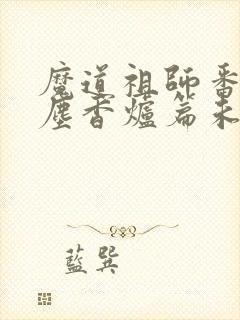 魔道祖師番
塵香爐篇未
藍巽